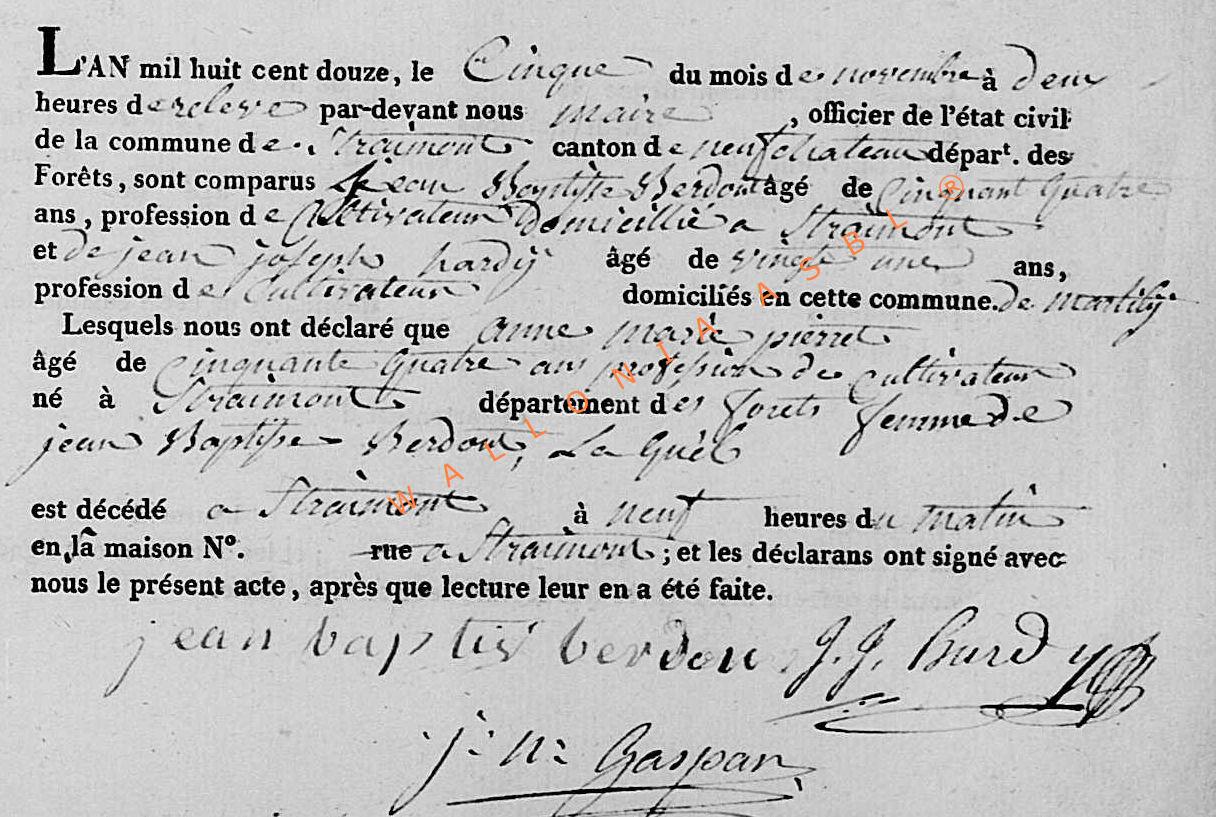 L'AN mil huit cent douze, le Cinque du mois de novembre à deux
heures de releve par-devant nous maire , officier de l'état civil
de la commune de Straimont canton de neufchateau départ. des
Forêts, sont comparus jean Baptiste Berdont âgé de Cinquant Quatre
ans, profession de Cultivateur domicillié a Straimont
et de jean joseph hardÿ âgé de vingt une ans,
profession de Cultivateur domiciliés en cette commune. de martillÿ
Lesquels nous ont déclaré que anne marie pierret
âgé de Cinquante Quatre ans profession de Cultivateur
né à Straimont département des forets femme de
jean Baptiste Berdont, La Quel
est décédé a Straimont à neuf heures du matin
en la maison N°. rue a Straimont ; et les déclarans ont signé avec
nous le présent acte, après que lecture leur en a été faite.
jean baptis berdon J. J. Hurdy
j: n: Gaspar
WALLONIA ASBL ®